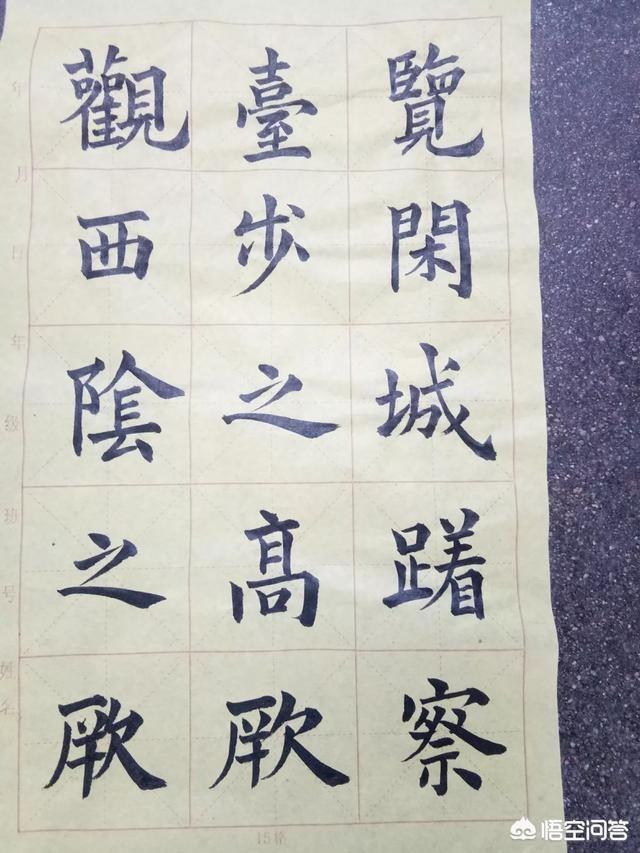 覽臺觀
閑步西
城之陰
躇高之
察厥厥
年月日 年级 班 号 姓名
15格
悟空问答